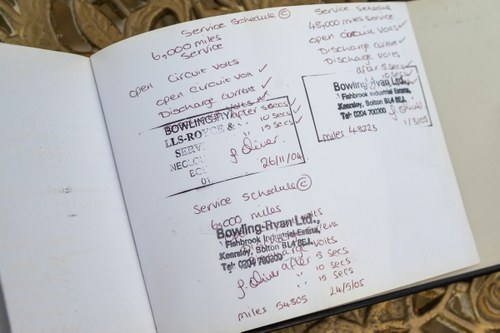 Service Schedule C
6,000 miles
Service
open Circuit Volts
open circuit Vol ✓
Discharge current ✓
BOWLING-RYAN
after 5 secs ✓
LLS-ROYCE &
10 secs ✓
SERV
15 secs ✓
J Oliver
26/11/04
Service Schedule C
6,000 miles
Bowling-Ryan Ltd.,
Fishbrook Industrial Estate,
Kearsley, Bolton BL4 8EA.
Tel: 0204 700300
volts
J Oliver after 5 secs
" 10 secs
" 15 secs
miles 54805 24/5/05
Service Schedule
48,000 miles service
open circuit Volts ✓
Discharge current ✓
Discharge volts
after 5 secs
Bowling-Ryan Ltd.,
Fishbrook Industrial Estate,
Kearsley, Bolton BL4 8EA.
Tel: 0204 700300
J Oliver
miles 48225